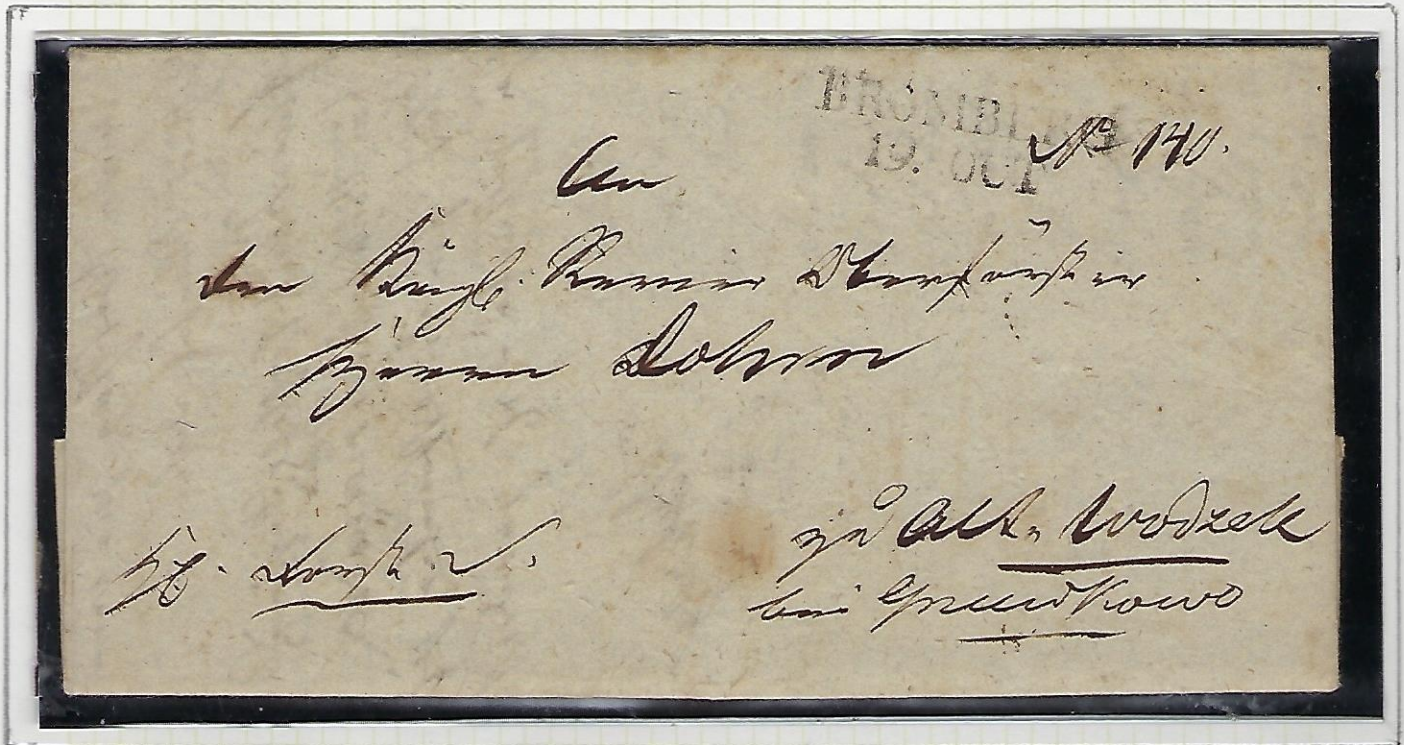 BROMBERG
19. OCT
№ 140.
An
den Königl. Revier Oberförster
Herrn Dohm
zu Alt-Wodzek
bei Gniewkowo